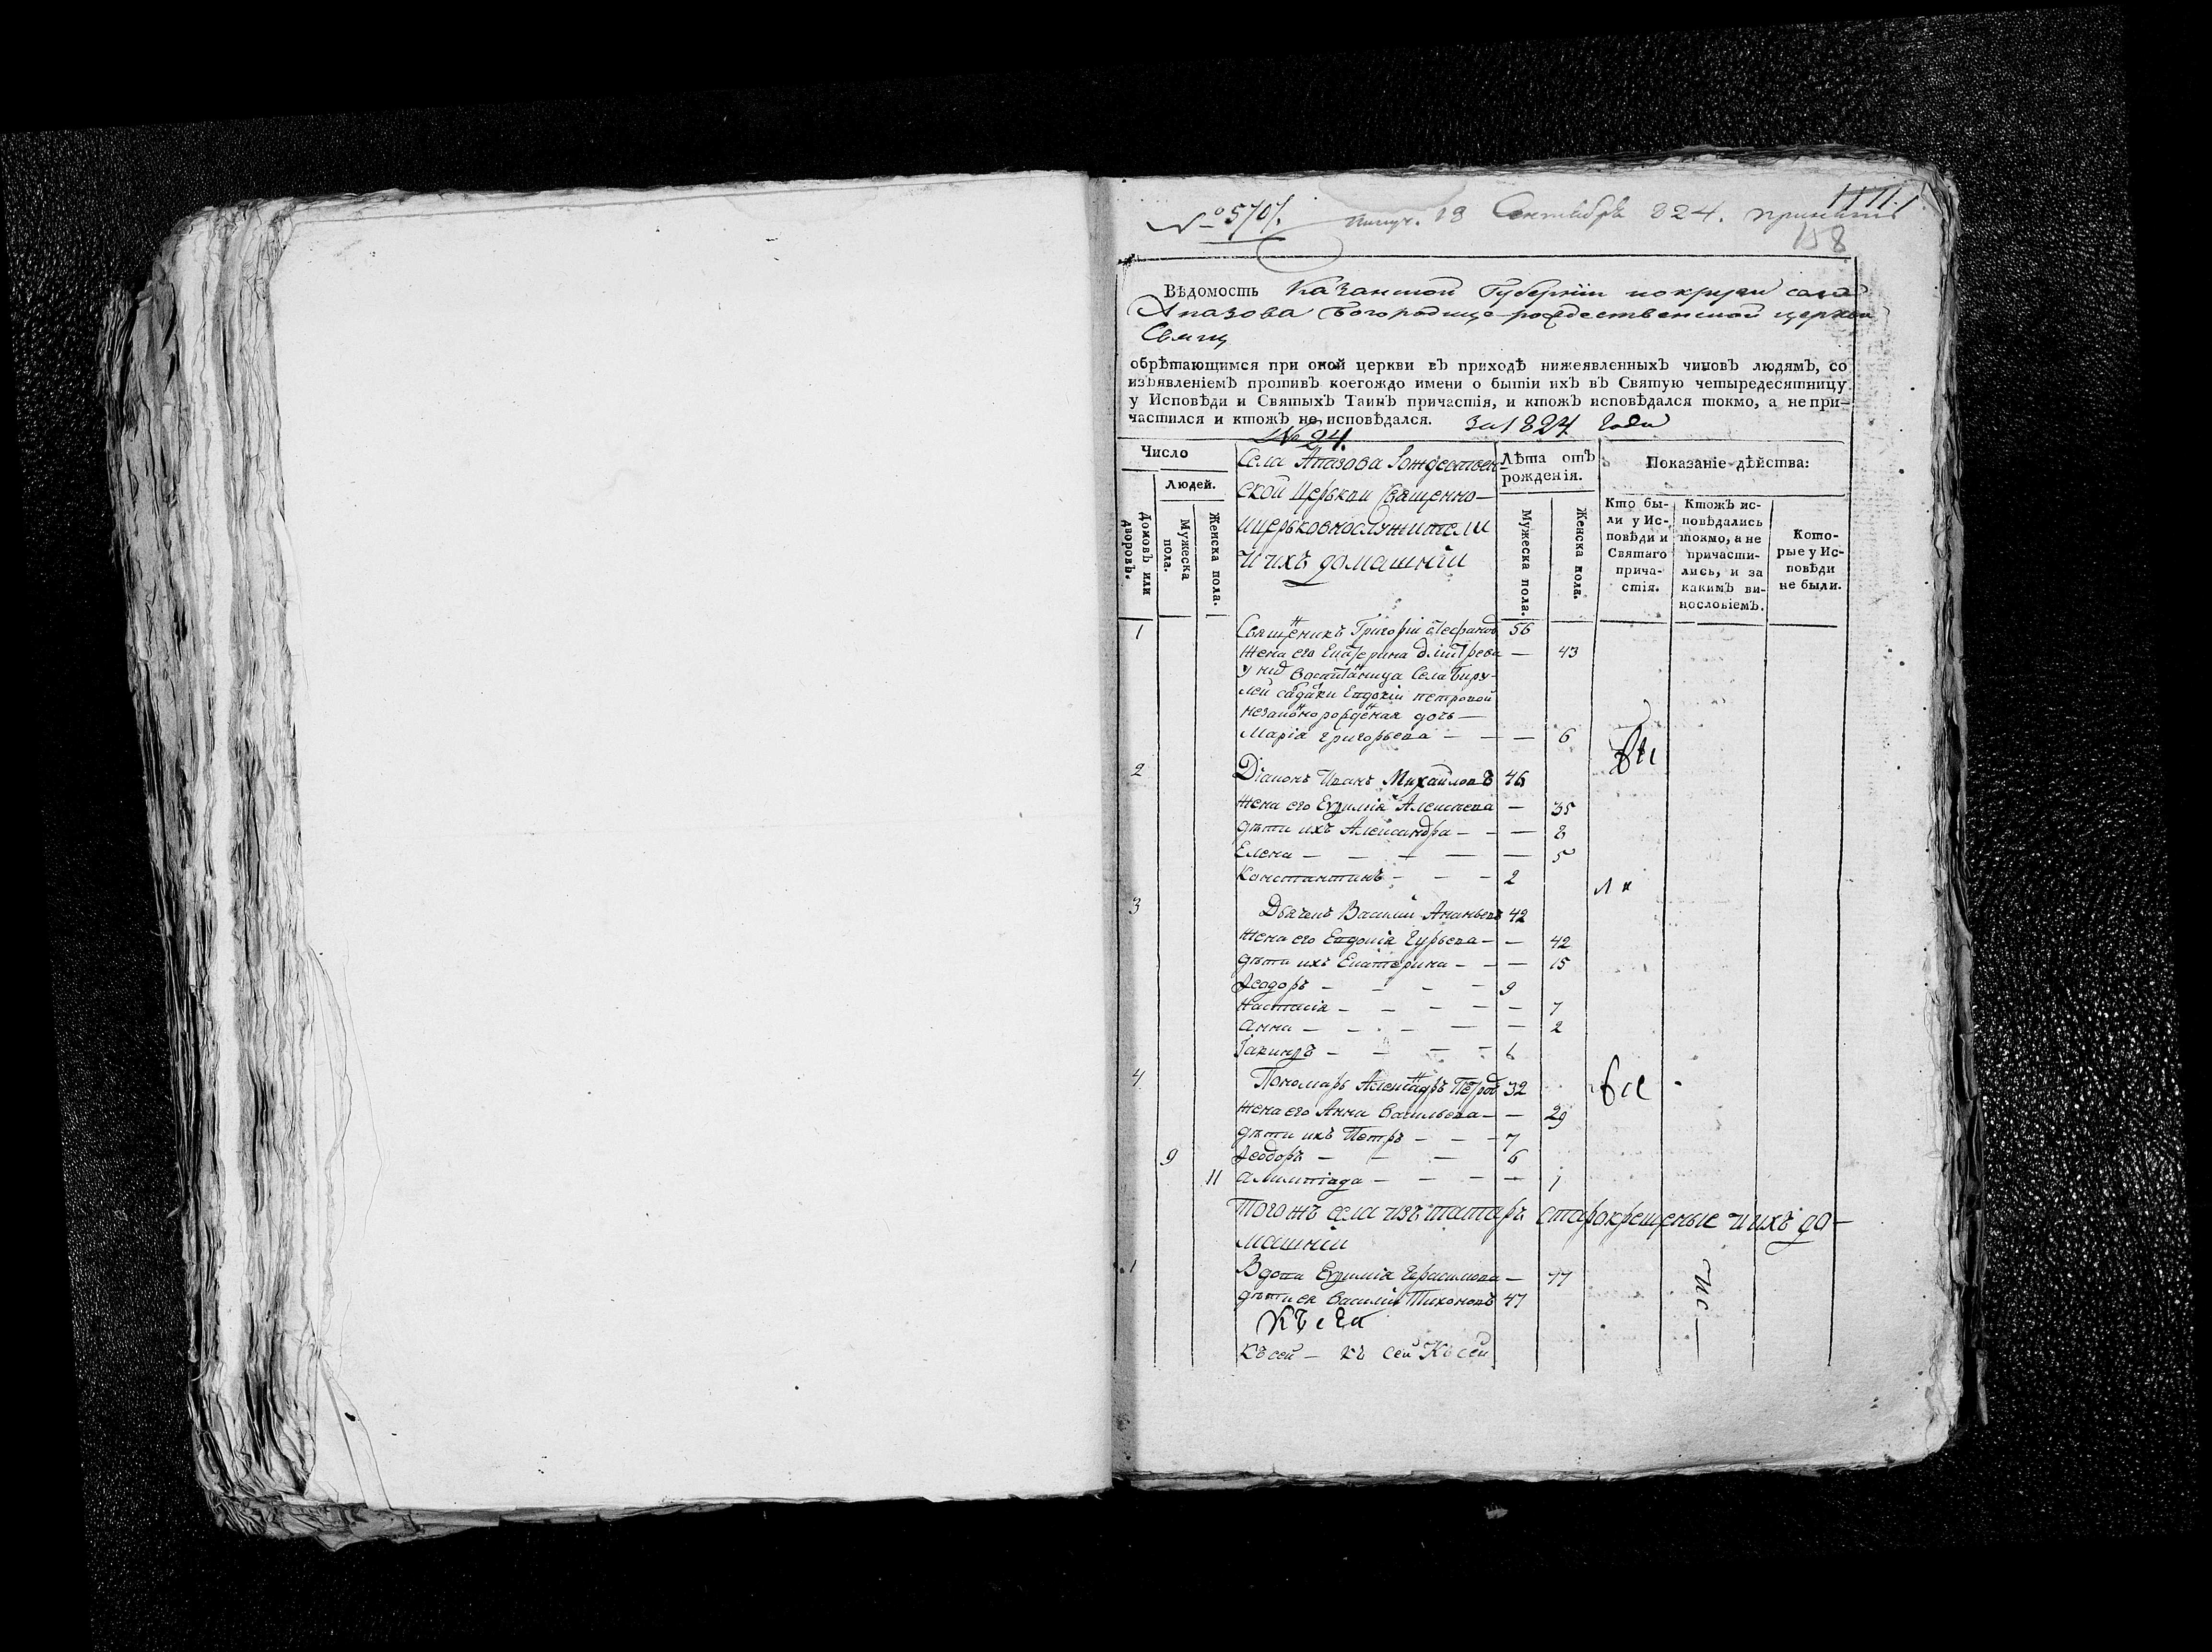 № 5701.
получ. 19 Сентября 824.
158
Вѣдомость Казанской Губерніи
Апазова Богородице-рождественской церкви
Свящ
обрѣтающимся при оной церкви въ приходѣ нижеявленныхъ чиновъ людямъ, со
изъявленіемъ противъ коегождо имени о бытіи ихъ въ Святую четыредесятницу
у Исповѣди и Святыхъ Таинъ причастія, и ктожъ исповѣдался токмо, а не при-
частился и ктожъ не исповѣдался. За 1824 годъ
№ 24.
Число
Людей.
Домовъ или дворовъ.
Мужеска пола.
Женска пола.
Села Апазова Рождествен-
ской Церькви Священно-
ицерьковнослужители
И ихъ домашніи
Лѣта отъ рожденія.
Мужеска пола.
Женска пола.
Показаніе дѣйства:
Кто бы-
ли у Ис-
повѣди и
Святаго
прича-
стія.
Ктожъ ис-
повѣдались
токмо, а не
причасти-
лись, и за
какимъ ви-
нословіемъ.
Кото-
рые у Ис-
повѣди
не были.
1 Священникъ Григорій Стефановъ 56
Жена его Екатерина Дмитрева — 43
у нихъ воспитаница села
Евдокіи петровой
незаконорожденая дочь —
Марія григорьева — — — 6
2 Діаконъ Иванъ Михайловъ 46
Жена его Евѳимія Алексеева — 35
дѣти ихъ Александра — — — 8
Елена — — — — — 5
Константинъ — — — 2
3 Дьячекъ Василій Ананьевъ 42
Жена его Евдокія Гурьева — — 42
дѣти ихъ Екатерина — — — 15
Ѳеодоръ — — — — 9
Настасія — — — — — 7
Анна — — — — — 2
Іакинѳъ — — — —
4 Пономарь Александръ Петровъ 32
все
Жена его Анна Васильева — — 29
дѣти ихъ Петръ — — — 7
9 Ѳеодоръ — — — 6
11 Алимпіада — — — — 1
Тогожъ села изъ татаръ старокрещеные и ихъ до-
машніи
1 Вдова Евѳимія Герасимова — 77
дѣти ея Василій Тихоновъ 47
Къ сей — къ сей Къ сей